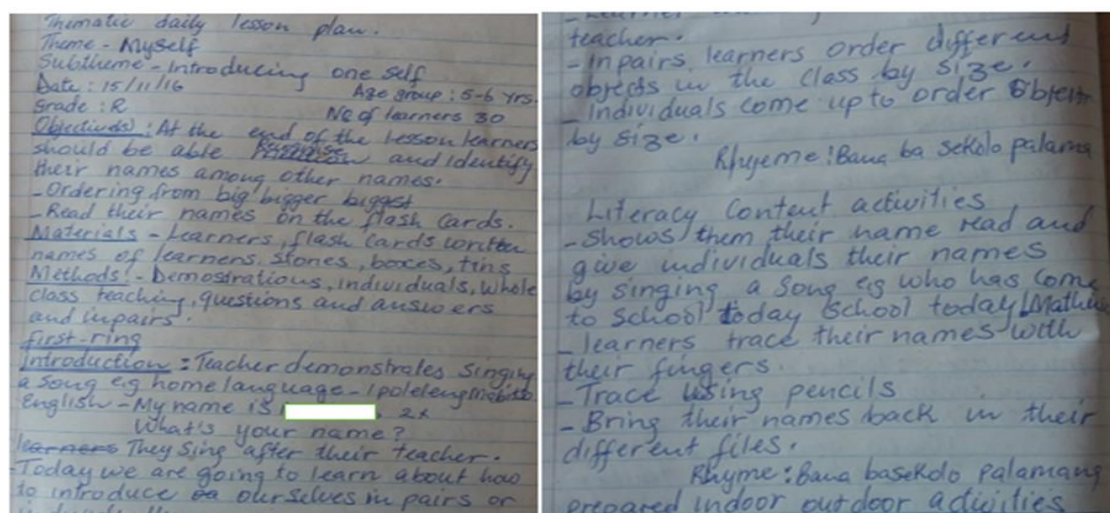 Thematic daily lesson plan.
Theme - Myself
Subtheme - Introducing one self
Date : 15/11/16 Age group : 5-6 yrs.
Grade : R No of learners 30
Objectives : At the end of the lesson learners
should be able and identify
their names among other names.
- Ordering from big bigger biggest
- Read their names on the flash cards.
Materials - Learners, flash cards written
names of learners, stones, boxes, tins
Methods : - Demostrations, individuals, whole
class teaching, questions and answers
and inpairs.
first-ring
Introduction : Teacher demonstrates singing
a song e.g home language -
English - My name is 2x
What's your name?
learners They sing after their teacher.
- Today we are going to learn about how
to introduce ourselves in pairs or
teacher.
- Inpairs learners order different
objects in the class by size.
- Individuals come up to order objects
by size.
Rhyeme : Bana ba sekolo palama
Literacy Content activities
- Shows them their name read and
give individuals their names
by singing a song eg who has come
to school today School today
- learners trace their names with
their fingers.
- Trace using pencils
- Bring their names back in their
different files.
Rhyme : Bana basekolo palamang
prepared indoor outdoor activities